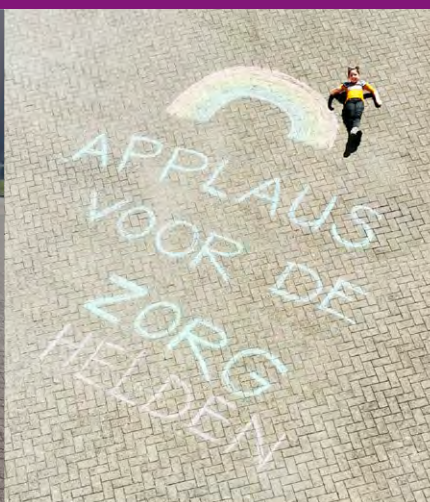 APPLAUS
VOOR DE
ZORG
HELDEN